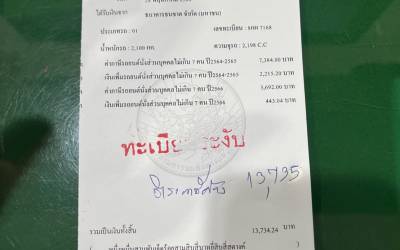 ได้รับเงินจาก ธนาคารธนชาต จำกัด (มหาชน)
ประเภทรถ : 01 เลขทะเบียน : 7168
น้ำหนักรถ : 2,100 กก. ความจุรถ : 2,198 C.C
ค่าภาษีรถยนต์นั่งส่วนบุคคลไม่เกิน 7 คน ปี2564-2565 7,384.00 บาท
เงินเพิ่มรถยนต์นั่งส่วนบุคคลไม่เกิน 7 คน ปี2564-2565 2,215.20 บาท
ค่าภาษีรถยนต์นั่งส่วนบุคคลไม่เกิน 7 คน ปี2566 3,692.00 บาท
เงินเพิ่มรถยนต์นั่งส่วนบุคคลไม่เกิน 7 คน ปี2566 443.04 บาท
ทะเบียนระงับ
13,735
รวมเป็นเงินทั้งสิ้น 13,734.24 บาท
( หนึ่งหมื่นสามพันเจ็ดร้อยสามสิบสี่บาทยี่สิบสี่สตางค์ )